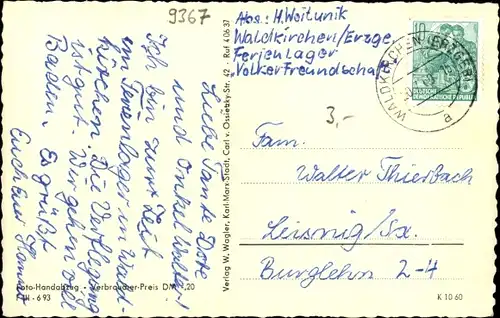 9367
Abs.: H. Woitunik
Waldkirchen/Erzge.
Ferienlager
"Völkerfreundschaft"
WALDKIRCHEN (ERZGEB)
a
10
DEUTSCHE
DEMOKRATISCHE REPUBLIK
3,-
Liebe Tante Dore
und Onkel Walter!
Ich bin zurzeit
im Ferienlager in Wald-
kirchen. Die Verpflegung
ist gut. Wir gehen oft
Baden. Es grüßt
Euch Euer Hannes
Fam.
Walter Thierbach
Leisnig/Sa.
Burglehn 2-4
Verlag W. Wagler, Karl-Marx-Stadt, Carl v. Ossietzky-Str. 42 · Ruf 406 37
Foto-Handabzug · Verbraucher-Preis DM -,20
693
K 10 60